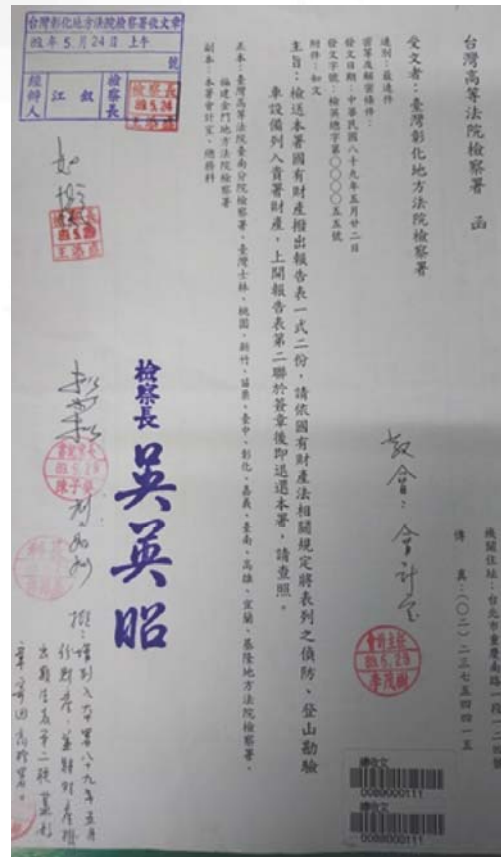 台灣高等法院檢察署 函
機關住址：台北市重慶南路一段一二四號
傳 真：(○二)二三七五四四一五
受文者：臺灣彰化地方法院檢察署
速別：最速件
密等及解密條件：
發文日期：中華民國八十九年五月廿二日
發文字號：檢英總字第○○○○五五號
附件：如文
主旨：檢送本署國有財產撥出報告表一式二份，請依國有財產法相關規定將表列之偵防、登山勘驗
車設備列入貴署財產，上開報告表第二聯於簽章後即退還本署，請查照。
正本：臺灣高等法院臺南分院檢察署、臺灣士林、桃園、新竹、苗栗、臺中、彰化、嘉義、臺南、高雄、宜蘭、基隆地方法院檢察署、
福建金門地方法院檢察署
副本：本署會計室、總務科
檢察長 吳英昭
台灣彰化地方法院檢察署收文章
89年5月24日 上午
號
經辦人
江 釵
檢察長
檢察長
89.5.24
敬會：會計室
會計主任
李茂樹
書記官長
陳子
總收文
0089000111
總收文
0089000111
擬：